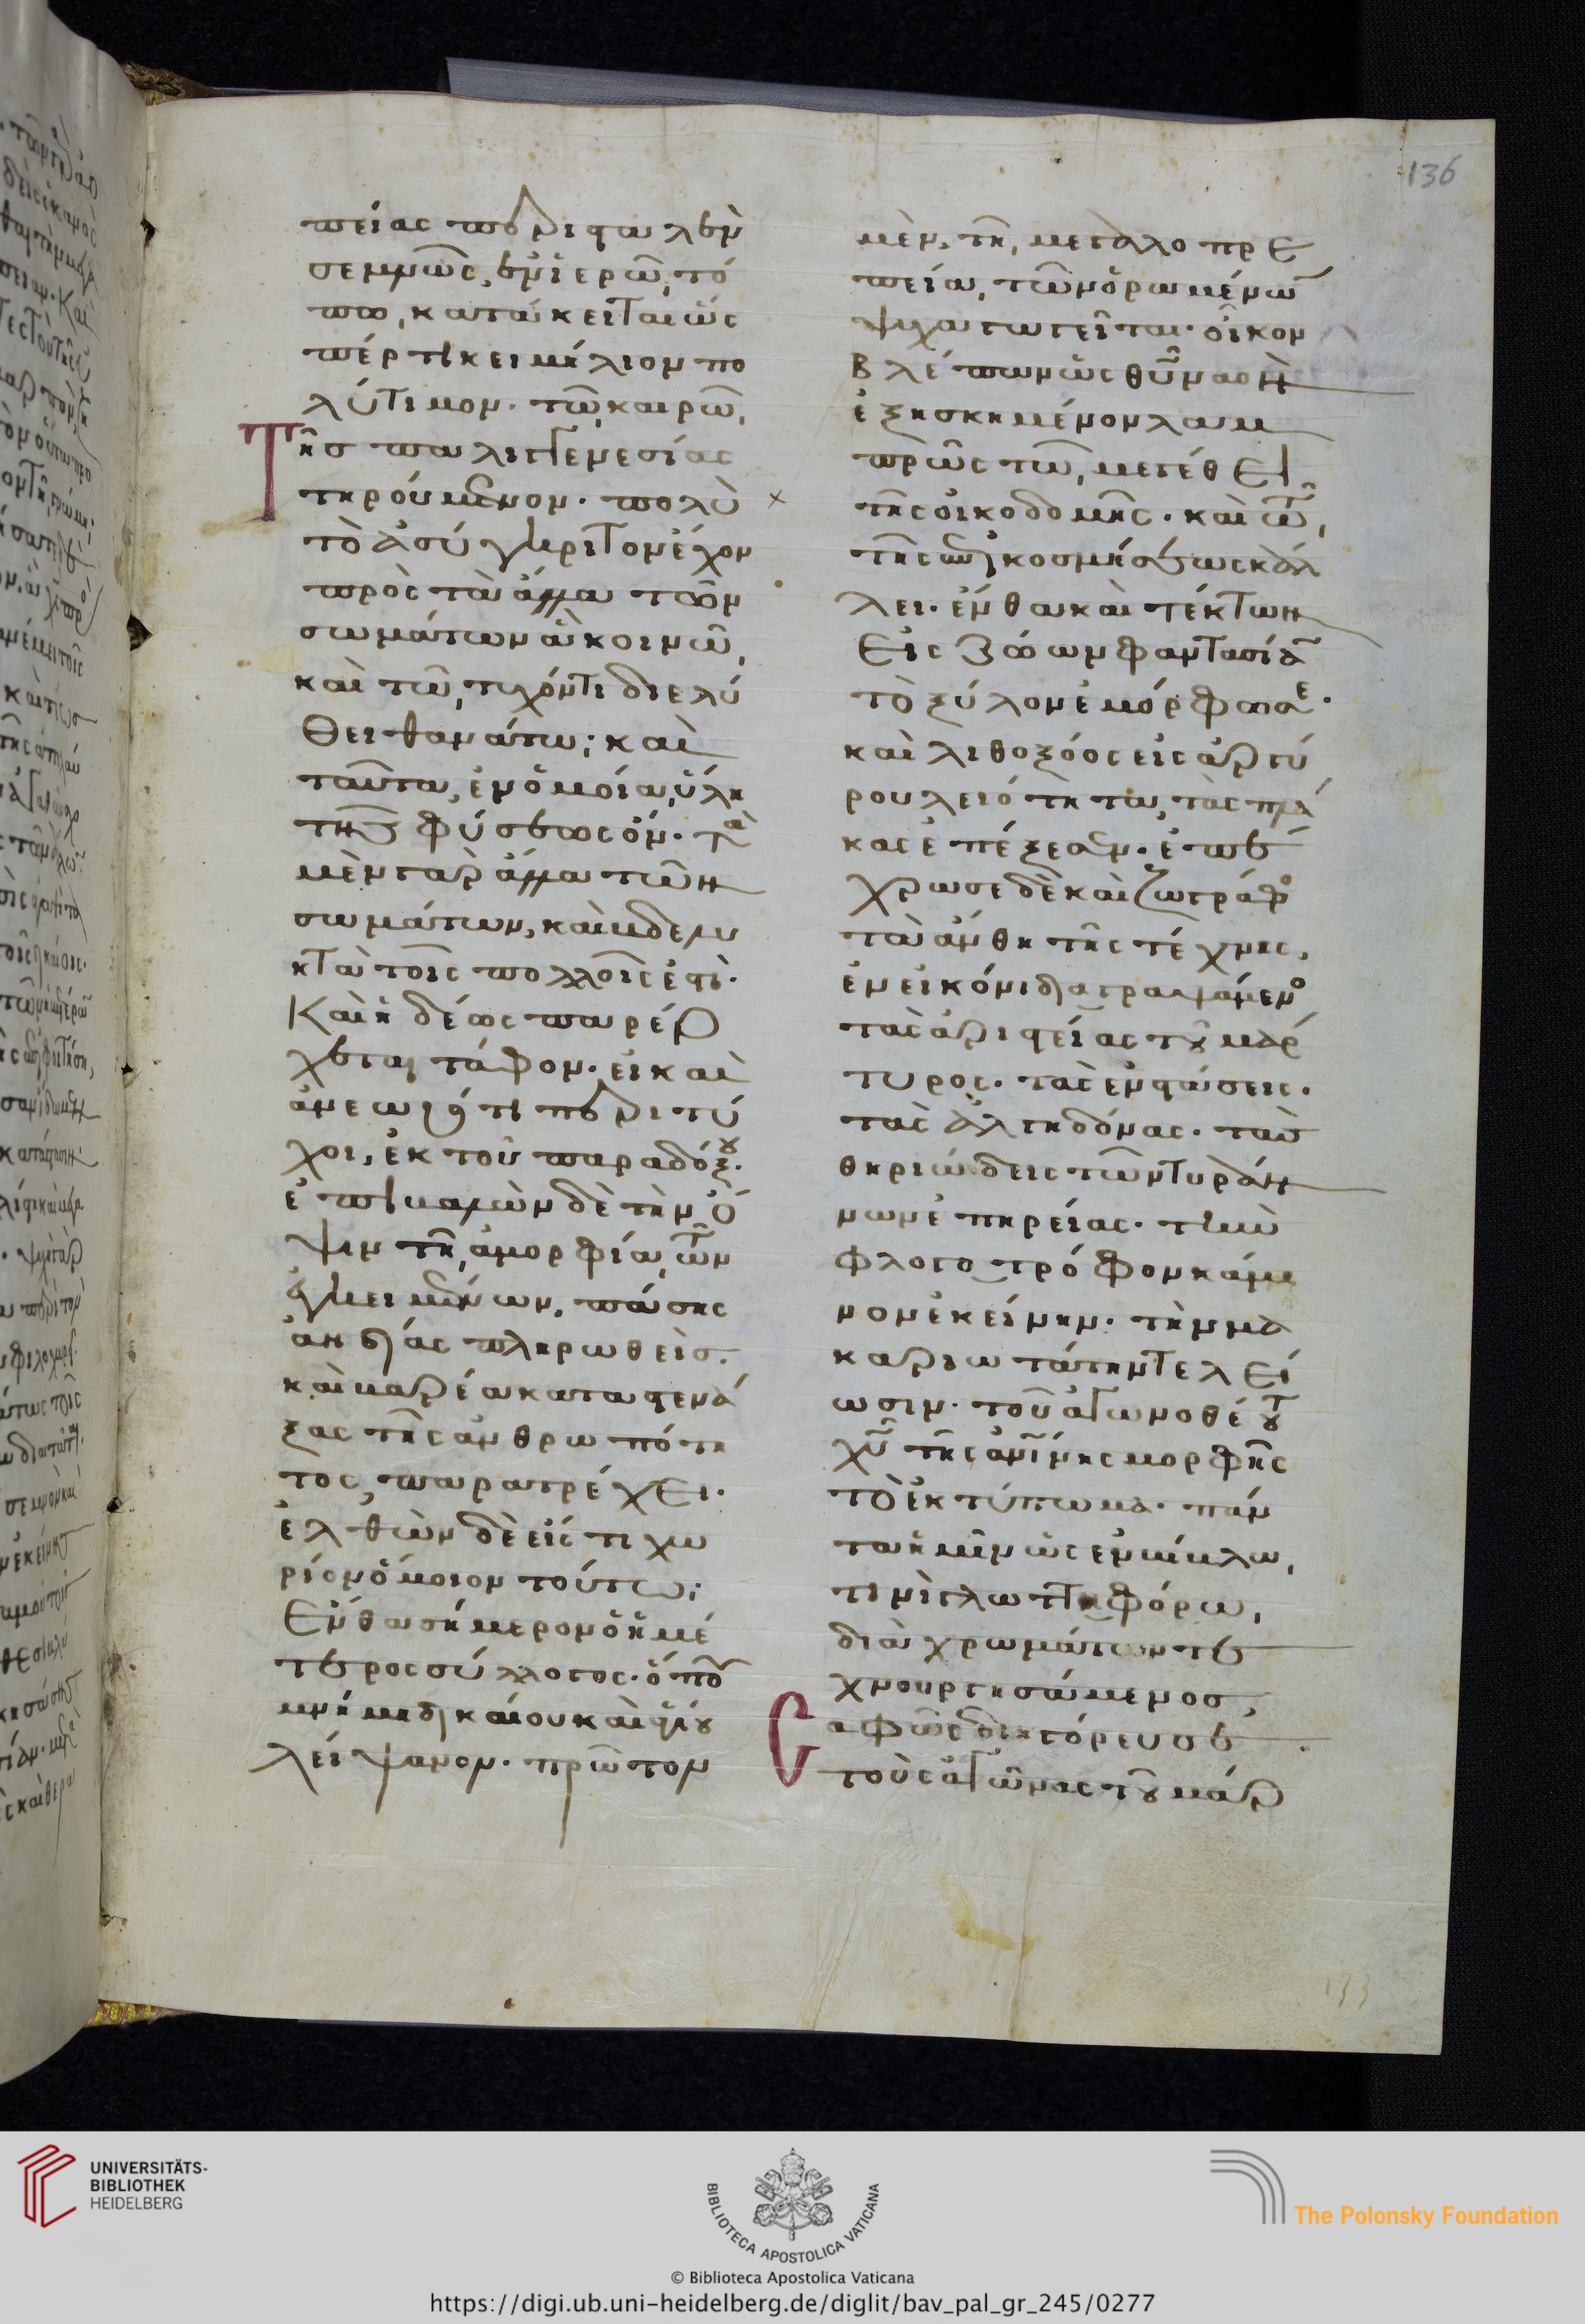 136
πείας περισταλὲν
σεμνῶς, ἐν ἱερῶ τό
πω, κατάκειται ὥς
πέρ τι κειμήλιον πο
λύτιμον. τῶ καιρῶ
Τῆσ παλιγγενεσίας
τηρούμενον. πολὺ
τὸ ἀσύγκριτον ἔχον
πρὸς τὰ ἄλλα τῶν
σωμάτων ἃ κοινῶ
καὶ τῶ τυχόντι διελύ
θει θανάτω; καὶ
ταῦτα, ἐν ὁμοία ὕλη
τῆς φύσεως ὄν. τὰ
μὲν γὰρ ἄλλα τῶν
σωμάτων, καὶ βδελυ
κτὰ τοῖς πολλοῖς ἐστὶ.
Καὶ ἡδέως παρέρ
χεται τάφον. εἰ καὶ
ἀνεωγότι περιτύ
χοι, ἐκ τοῦ παραδόξου.
ἐπιβαλὼν δὲ τὴν ὄ
ψιν τῆ ἀμορφία τῶν
ἐγκειμένων, πάσης
ἀηδίας πληρωθεὶσ.
καὶ βαρέα καταστενά
ξας τῆς ἀνθρωπότη
τος, παρατρέχει.
ἐλθὼν δὲ εἴς τι χω
ρίον ὅμοιον τούτω;
Ἔνθα σήμερον ὁ ἡμέ
τερος σύλλογος. ὅπου
μνήμη δικαίου καὶ ἅγιον
λείψανον. πρῶτον
μὲν, τῆ μεγαλοπρε
πεία τῶν ὁρωμένων
ψυχαγωγεῖται. οἶκον
βλέπων ὡς θυ ναὸν
ἐξησκημένον λαμ
πρῶς τῶ μεγέθει
τῆς οἰκοδομῆς. καὶ τῶ
τῆς ἐπικοσμήσεως κάλ
λει. ἔνθα καὶ τέκτων
εἰς ζώων φαντασίαν
τὸ ξύλον ἐμόρφωσε.
καὶ λιθοξόος εἰς ἀργύ
ρου λειότητα, τὰς πλά
κας ἐπέξεσεν. ἐπέ
χρωσε δὲ καὶ ζωγράφος
τὰ ἄνθη τῆς τέχνης,
ἐν εἰκόνι διαγραψάμενος
τὰς ἀριστείας τοῦ μάρ
τυρος. τὰς ἐνστάσεις.
τὰς ἀλγηδόνας. τὰς
θηριώδεις τῶν τυράν
νων ἐπηρείας. τὴν
φλογοτρόφον κάμι
νον ἐκείνην. τὴν μα
καριωτάτην τελεί
ωσιν. τοῦ ἀγωνοθέτου
χυ τῆς ἀνίνης μορφῆς
τὸ ἐκτύπωμα. πάν
τα ἡμῖν ὡς ἐν βιβλίω
τινὶ γλωττηφόρω,
διὰ χρωμάτων τε
χνουργησάμενοσ,
Σαφῶς διηγόρευσε
τοὺς ἀγῶνας τοῦ μάρ
133
UNIVERSITÄTS-
BIBLIOTHEK
HEIDELBERG
BIBLIOTECA APOSTOLICA VATICANA
The Polonsky Foundation
© Biblioteca Apostolica Vaticana
https://digi.ub.uni-heidelberg.de/diglit/bav_pal_gr_245/0277